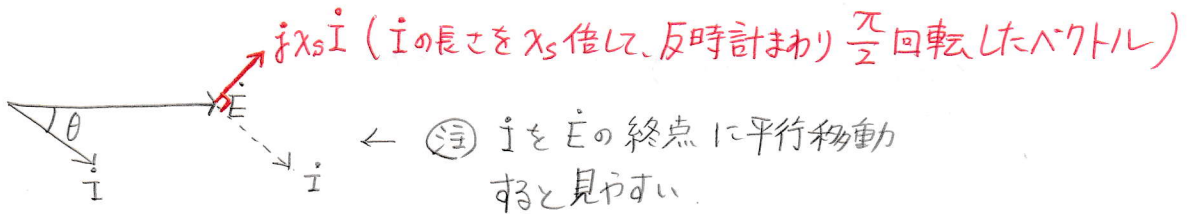 jxsİ (İの長さをxs倍して、反時計まわりπ/2回転したベクトル)
Ė
θ
İ
İ
← 注 İをĖの終点に平行移動
すると見やすい.